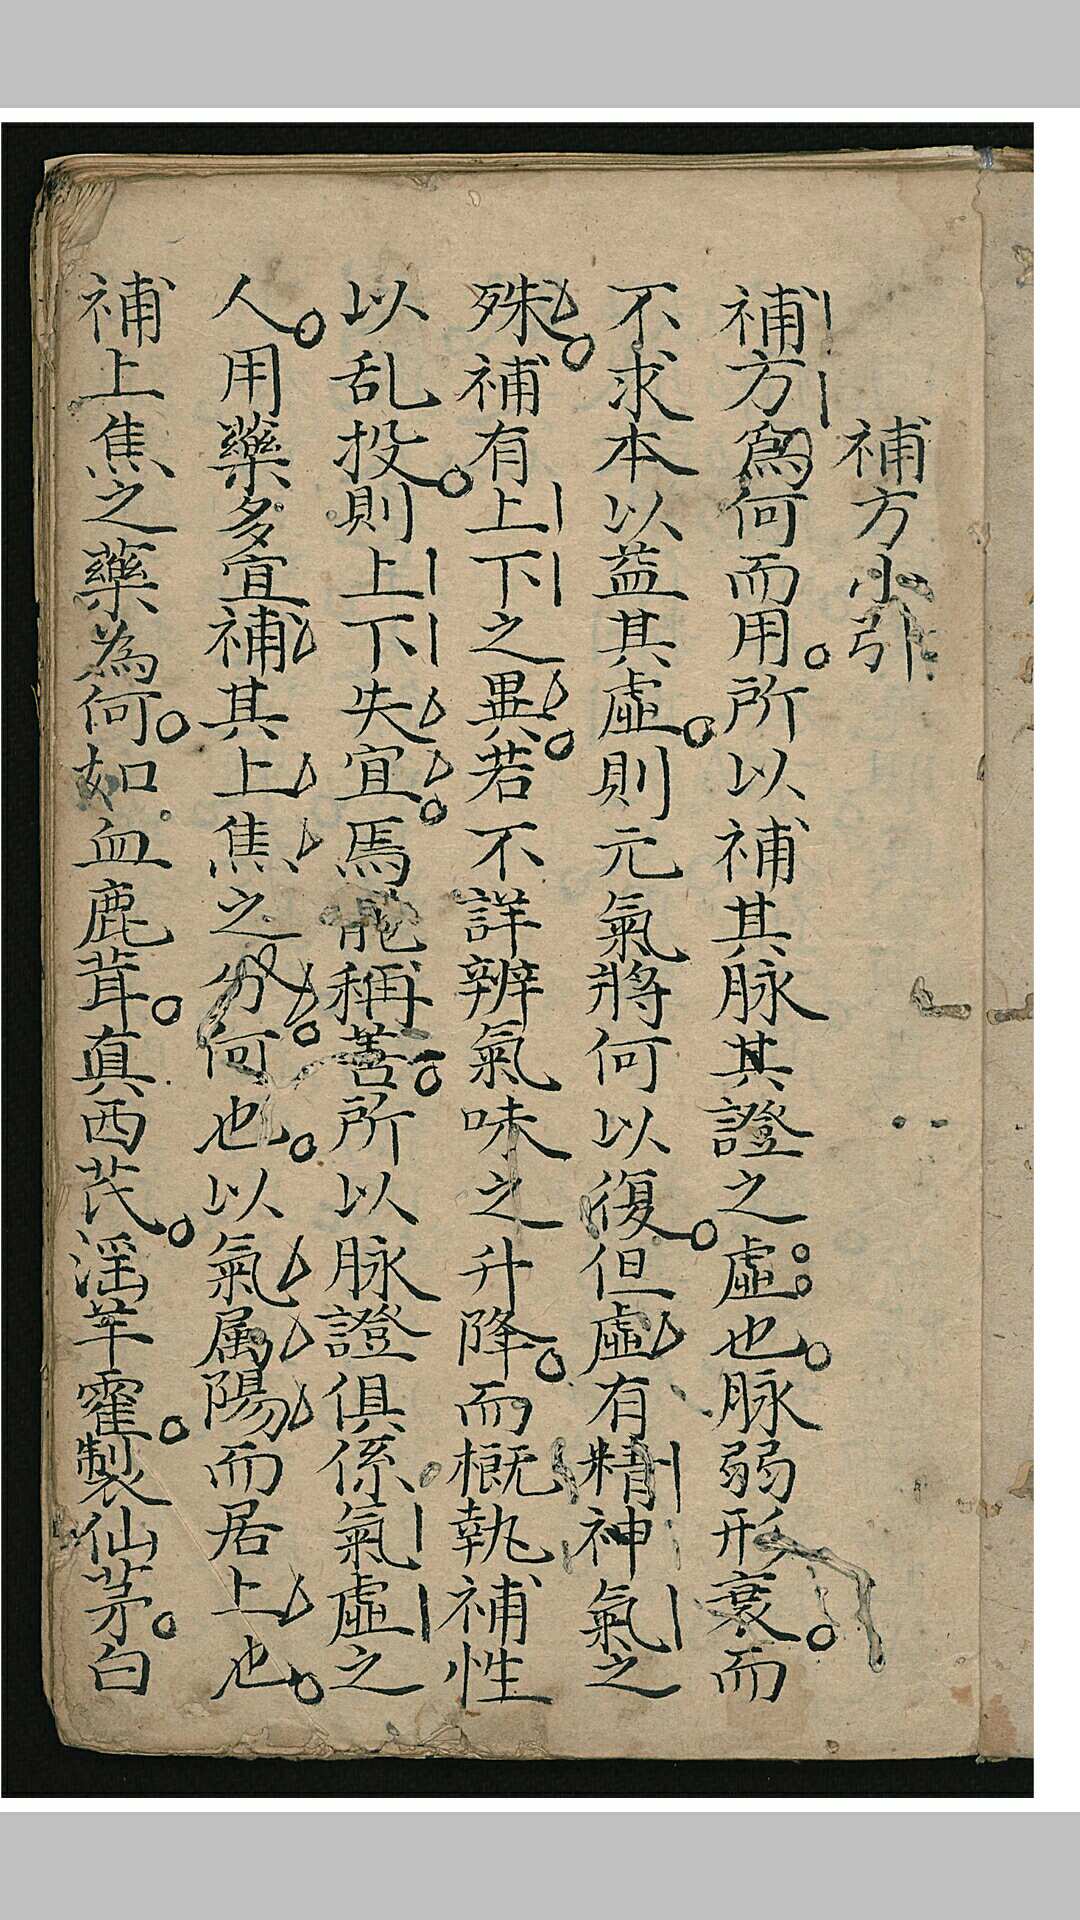 補方小引
補方為何而用所以補其脉其證之虛也脉弱形衰而
不求本以益其虛則元氣將何以復但虛有精神氣之
殊補有上下之異若不詳辨氣味之升降而概執補性
以乱投則上下失宜焉能稱善所以脉證俱係氣虛之
人用藥多宜補其上焦之分何也以氣属陽而居上也
補上焦之藥為何如血鹿茸真西芪淫羊藿製仙茅白